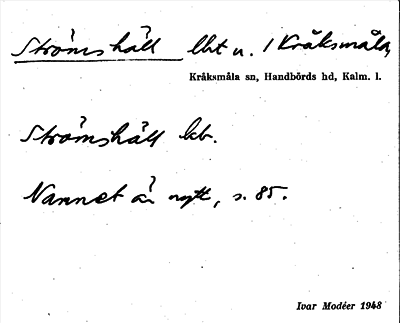 Strömshäll lht u. 1 Kråksmåla,
Kråksmåla sn, Handbörds hd, Kalm. l.
Strömshäll bb.
Namnet är nytt, s. 85.
Ivar Modéer 1948